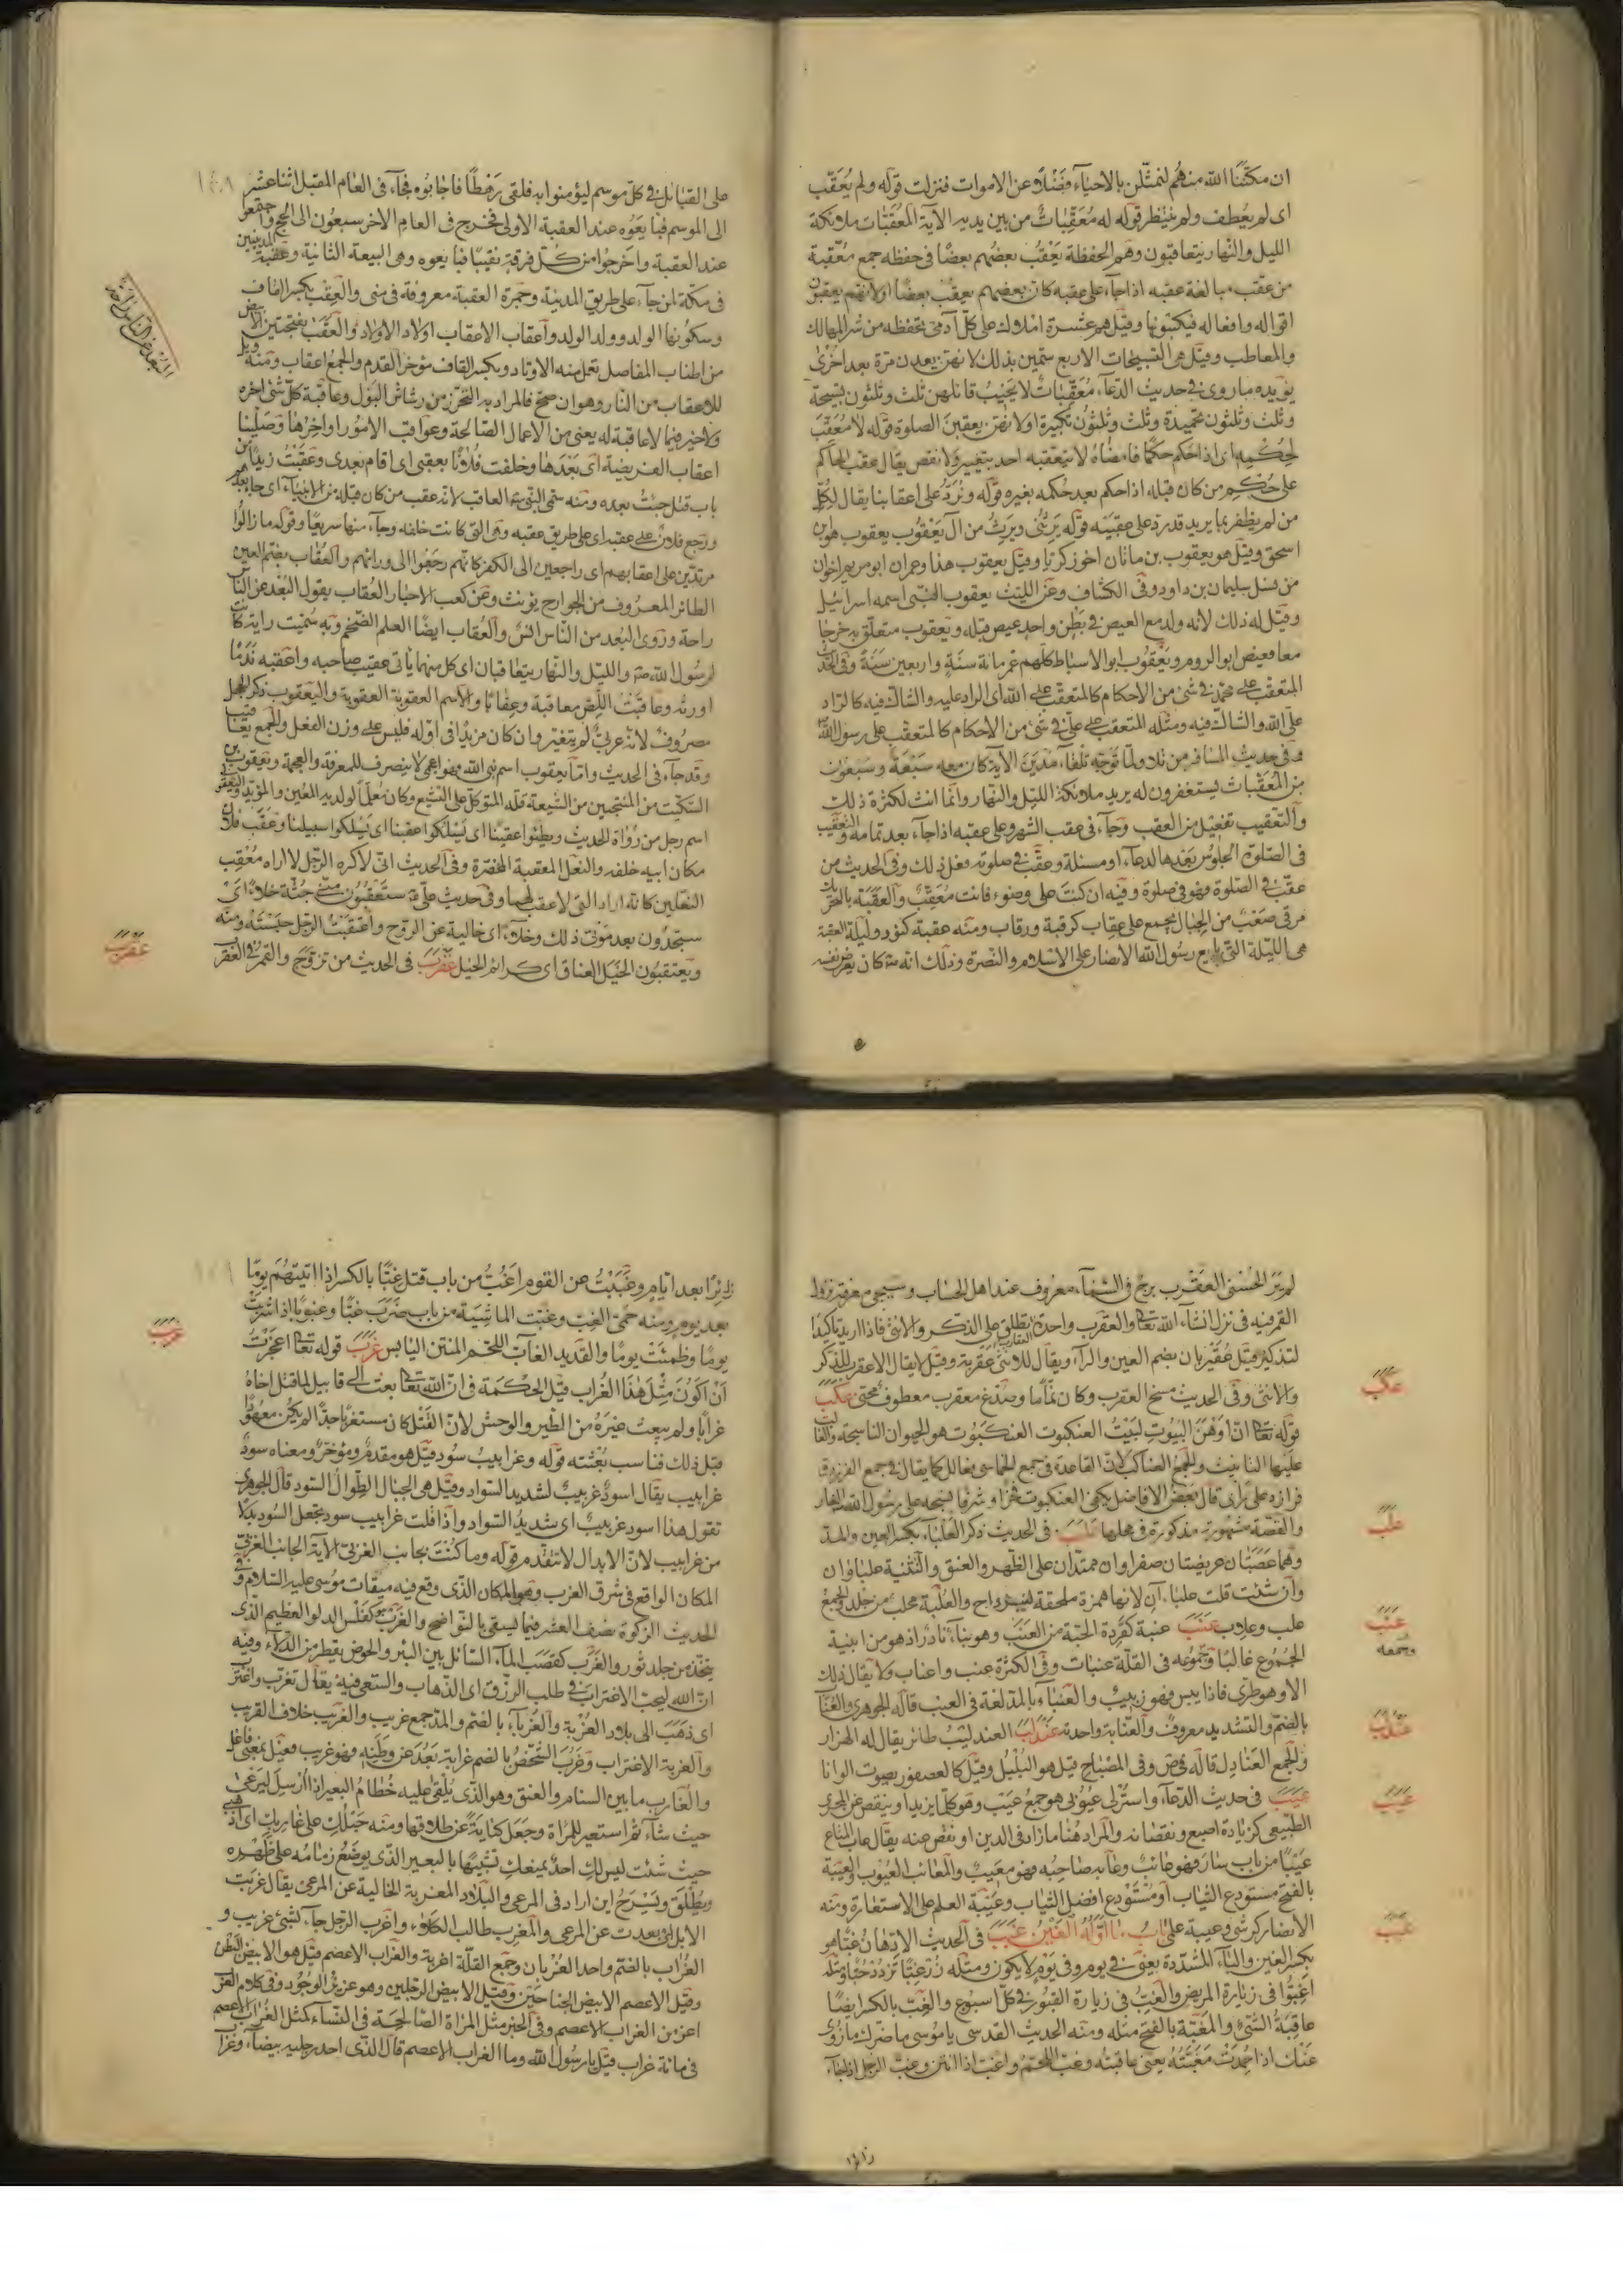 ان مكّننا الله منهم لنمثّلن بالاحياء فضلا عن الاموات فنزلت قوله ولم يعقّب
اى لم يعطف ولم ينتظر قوله له معقّبات من بين يديه الآية المعقّبات ملائكة
الليل والنهار يتعاقبون وهم الحفظة يعقب بعضهم بعضا فى حفظه جمع معقّبة
من عقب مبالغة عقبه اذا جاء على عقبه كان بعضهم يعقب بعضا او لانهم يعقبون
اقواله وافعاله فيكتبونها وقيل هم عشرة املاك على كلّ آدمى تحفظه من شر المهالك
والمعاطب وقيل هى التسبيحات الاربع سمّين بذلك لانهن يعدن مرة بعد اخرى
يؤيده ما روى فى حديث الدعاء معقّبات لا يخيب قائلهن ثلث وثلثون تسبيحة
وثلث وثلثون تحميدة وثلث وثلثون تكبيرة او لانهن يعقبن الصلوة قوله لا معقّب
لحكمه اى اذا حكم حكما فامضاه لا يتعقبه احد بتغيير ولا نقص يقال عقب الحاكم
على حكم من كان قبله اذا حكم بعد حكمه بغيره قوله ونردّ على اعقابنا يقال لكلّ
من لم يظفر بما يريد قد ردّ على عقبيه قوله يرثنى ويرث من آل يعقوب يعقوب هو ابن
اسحق وقيل هو يعقوب بن ماثان اخو زكريا وقيل يعقوب هذا وعمران ابو مريم اخوان
من نسل سليمان بن داود وفى الكشاف وعن الليث يعقوب النبى اسمه اسرائيل
وقيل له ذلك لانه ولد مع العيص فى بطن واحد عيص قبله ويعقوب متعلّق به خرجا
معا فعيص ابو الروم ويعقوب ابو الاسباط كلّهم عمر مائة سنة واربعين سنة وفى الحديث
المتعقّب على محمّد فى شئ من الاحكام كالمتعقّب على الله اى الراد عليه والشاك فيه كالراد
على الله والشاك فيه ومثله المتعقب على علىّ فى شئ من الاحكام كالمتعقب على رسول الله
وفى حديث المسافر من تلا ولمّا توجّه تلقاء مدين الآية كان معه سبعة وسبعون
من المعقّبات يستغفرون له يريد ملائكة الليل والنهار وانّما انث لكثرة ذلك
والتعقيب تفعيل من العقب وجاء فى عقب الشهر وعلى عقبه اذا جاء بعد تمامه والتعقيب
فى الصلوة الجلوس بعدها لدعاء او مسئلة وعقّب فى صلوته فعل ذلك وفى الحديث من
عقّب فى الصلوة فهو فى صلوة وفيه ان كنت على وضوء فانت معقّب والعقبة بالتحريك
مرقى صعب من الجبال يجمع على عقاب كرقبة ورقاب ومنه عقبة كئود وليلة العقبة
هى الليلة التى بايع رسول الله الانصار على الاسلام والنصرة وذلك انه كان يعرض نفسه
على القبائل فى كلّ موسم ليؤمنوا به فلقى رهطا فاجابوه فجاء فى العام المقبل اثنا عشر
الى الموسم فبايعوه عند العقبة الاولى فخرج فى العام الآخر سبعون الى الحج واجتمعوا
عند العقبة واخرجوا من كلّ فرقة نقيبا فبايعوه وهى البيعة الثانية وعقبة المدنيين
فى مكّة لمن جاء على طريق المدينة وجمرة العقبة معروفة فى منى والعقب بكسر القاف
وسكونها الولد وولد الولد واعقاب الاعقاب اولاد الاولاد والعقب بفتحتين الابيض
من اطناب المفاصل تعمل منه الاوتار وبكسر القاف مؤخر القدم والجمع اعقاب ومنه ويل
للاعقاب من النار وهو ان صحّ فالمراد به التحرّز من رشاش البول وعاقبة كلّ شئ آخره
ولا خير فيما لا عاقبة له يعنى من الاعمال الصالحة وعواقب الامور اواخرها وصلّينا
اعقاب الفريضة اى بعدها وخلفت فلانا بعقبى اى اقام بعدى وعقبت زيدا من
باب قتل جئت بعده ومنه سمّى النبى العاقب لانه عقب من كان قبله من الانبياء اى جاء بعدهم
ورجع فلان على عقبه اى على طريق عقبه وهى التى كانت خلفه وجاء منها سريعا وقوله ما زالوا
مرتدّين على اعقابهم اى راجعين الى الكفر كانهم رجعوا الى ورائهم والعقاب بضمّ العين
الطائر المعروف من الجوارح يؤنث وعن كعب الاحبار العقاب يقول البعد عن الناس
راحة وروى البعد من الناس انس والعقاب ايضا العلم الضخم وبه سمّيت راية كانت
لرسول الله والليل والنهار يتعاقبان اى كل منهما يأتى عقيب صاحبه واعقبه ندما
اورثه وعاقبت اللص معاقبة وعقابا والاسم العقوبة واليعقوب ذكر الحجل
مصروف لانه عربى لم يتغيّر وان كان مزيدا فى اوّله فليس على وزن الفعل والجمع يعاقيب
وقد جاء فى الحديث وامّا يعقوب اسم نبى الله فهو اعجمى لا ينصرف للمعرفة والعجمة ويعقوب بن
السكّيت من المنتجبين من الشيعة قتله المتوكل على التشيع وكان معلّما لولديه المعين والمؤيد
اسم رجل من رواة الحديث ويطئوا عقبنا اى يسلكوا عقبنا اى يسلكوا سبيلنا وعقب فلان
مكان ابيه خلفه والنعل المعقبة المخصّرة وفى الحديث انّى لاكره الرجل لا اراه معقب
النعلين كانه اراد التى لا عقب لهما وفى حديث علىّ ستعقبون منّى جثة خلاء اى
ستجدون بعد موتى ذلك وخلاء اى خالية عن الروح واعتقبت الرجل حبسته ومنه
ويعتقبون الخيل العتاق اى كرائم الخيل عقرب فى الحديث من تزوّج والقمر فى العقرب
عقرب
لم ير الحسنى العقرب برج فى السماء معروف عند اهل الحساب وسيجئ معرفة نزول
القمر فيه فى نزل انشاء الله تعالى والعقرب واحدة العقارب يطلق على الذكر والانثى فاذا اريد تأكيدا
لتذكير قيل عقربان بضم العين والراء ويقال للانثى عقربة وقيل لا يقال الا عقرب للذكر
والانثى وفى الحديث مسخ العقرب وكان نمّاما وصدغ معقرب معطوف محنى عكب
عكب
قوله تعالى انّ اوهن البيوت لبيت العنكبوت العنكبوت هو الحيوان الناسجة والغالب
عليها التانيث والجمع العناكب لانّ القاعدة فى جمع الخماسى فعالل كما يقال فى جمع الفرزدق
فرازد على رأى قال بعض الافاضل يكفى العنكبوت فخرا وشرفا نسجه على رسول الله الغار
والقصّة مشهورة مذكورة فى محلها علب فى الحديث ذكر العلباء بكسر العين والمد
علب
وهما عصبتان عريضتان صفراوان ممتدّان على الظهر والعنق والتثنية علباوان
وان شئت قلت علباءآن لانها همزة ملحقة والعلبة محلب من جلد الجمع
علب وعلاب عنب عنبة كقردة الحبّة من العنب وهو بناء نادر اذ هو من ابنية
عنب
وجمعه
الجموع غالبا وجمعه فى القلّة عنبات وفى الكثرة عنب واعناب ولا يقال ذلك
الا وهو طرى فاذا يبس فهو زبيب والعنباء بالمد لغة فى العنب قاله الجوهرى والعناب
بالضمّ والتشديد معروف والعنّابة واحدته عندلب العندليب طائر يقال له الهزار
عندلب
والجمع العنادل قاله فى ص وفى المصباح قيل هو البلبل وقيل كالعصفور يصوت الوانا
عيب فى حديث الدعاء واستر لى عيوبى هو جمع عيب وهو كلما يزيد او ينقص عن المجرى
عيب
الطبيعى كزيادة اصبع ونقصانه والمراد هنا ما زاد فى الدين او نقص منه يقال عاب المتاع
عيبا من باب سار فهو عائب وعابه صاحبه فهو معيب والمعائب العيوب والعيبة
بالفتح مستودع الثياب او مستودع افضل الثياب وعيبة العلم على الاستعارة ومنه
الانصار كرشى وعيبة علمى باب ما اوّله الغين غبب فى الحديث الادّهان غبّا هو
غبب
بكسر الغين والباء المشدّدة يعنى فى يوم وفى يوم لا يكون ومثله زر غبّا تزدد حبّا ومثله
اغبّوا فى زيارة المريض والغبّ فى زيارة القبور فى كلّ اسبوع والغب بالكسر ايضا
عاقبة الشئ والمغبّة بالفتح مثله ومنه الحديث القدسى يا موسى ما ضرك ما زوى
عنك اذا حمدت مغبّته يعنى عاقبته وغبّ اللحم واغب اذا انتن وغبّ الرجل اذا جاء
زائرا
زائرا بعد ايّام وغببت عن القوم اغبّ من باب قتل غبّا بالكسر اذا اتيتهم يوما
بعد يوم ومنه حمّى الغب وغبت الماشية من باب ضرب غبّا وغبوبا اذا شربت
يوما وظمئت يوما والقديد الغابّ اللحم المنتن اليابس غرب قوله تعالى اعجزت
غرب
ان اكون مثل هذا الغراب قيل الحكمة فى انّ الله تعالى بعث الى قابيل لما قتل اخاه
غرابا ولم يبعث غيره من الطير والوحش لانّ القتل كان مستغربا جدّا لم يكن معهودا
قبل ذلك فناسب بعثته قوله وغرابيب سود قيل هو مقدّم ومؤخر ومعناه سود
غرابيب يقال اسود غربيب لشديد السواد وقيل هى الجبال الطوال السود قال الجوهرى
تقول هذا اسود غربيب اى شديد السواد واذا قلت غرابيب سود تجعل السود بدلا
من غرابيب لانّ الابدال لا تتقدّم قوله وما كنت بجانب الغربىّ الآية الجانب الغربى
المكان الواقع فى شرق الغرب وهو المكان الذى وقع فيه ميقات موسى عليه السلام وفى
الحديث الزكوة نصف العشر فيما يسقى بالنواضح والغرب هو كفلس الدلو العظيم الذى
يتّخذ من جلد ثور والغرب كقصب الماء السائل بين البئر والحوض يقطر من الدلاء وفيه
انّ الله ليحبّ الاغتراب فى طلب الرزق اى الذهاب والسعى فيه يقال تغرّب واغترب
اى ذهب الى بلاد الغربة والغرباء بالضم والمد جمع غريب والغريب خلاف القريب
والغربة الاغتراب وغرب الشخص بالضم غرابة بعد عن وطنه فهو غريب فعيل بمعنى فاعل
والغارب ما بين السنام والعنق وهو الذى يلقى عليه خطام البعير اذا ارسل ليرعى
حيث شاء ثم استعير للمراة وجعل كناية عن طلاقها ومنه حبلك على غاربك اى اذهبى
حيث شئت ليس لك احد يمنعك تشبيها بالبعير الذى يوضع زمامه على ظهره
ويطلق ويسرح اين اراد فى المرعى والبلاد المغربة الخالية عن المرعى يقال غربت
الابل اذا بعدت عن المرعى والمغرب طالب الكلاء واغرب الرجل جاء لشئ غريب و
الغراب بالضم واحد الغربان وجمع القلّة اغربة والغراب الاعصم قيل هو الابيض البطن
وقيل الاعصم الابيض الجناحين وقيل الابيض الرجلين وهو عزيز الوجود وفى كلام العرب
اعز من الغراب الاعصم وفى الخبر مثل المراة الصالحة فى النساء كمثل الغراب الاعصم
فى مائة غراب قيل يا رسول الله وما الغراب الاعصم قال الذى احد رجليه بيضاء وغرا